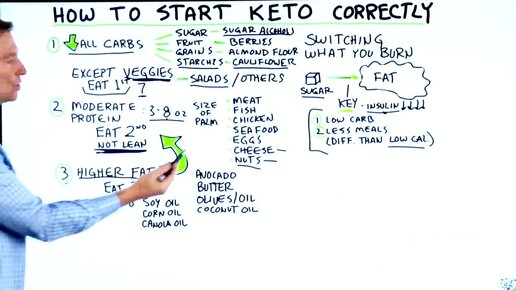 HOW TO START KETO CORRECTLY
1 ALL CARBS
SUGAR — SUGAR ALCOHOL
FRUIT — BERRIES
GRAINS — ALMOND FLOUR
STARCHES — CAULIFLOWER
EXCEPT VEGGIES — SALADS / OTHERS
EAT 1ST 7
2 MODERATE PROTEIN : 3-8 OZ
SIZE OF PALM
EAT 2ND
NOT LEAN
MEAT
FISH
CHICKEN
SEAFOOD
EGGS
CHEESE
NUTS
3 HIGHER FAT
EAT
SOY OIL
CORN OIL
CANOLA OIL
AVOCADO
BUTTER
OLIVES/OIL
COCONUT OIL
SWITCHING
WHAT YOU BURN
SUGAR
FAT
KEY - INSULIN ↓↓↓↓
1 LOW CARB
2 LESS MEALS
(DIFF. THAN LOW CAL)